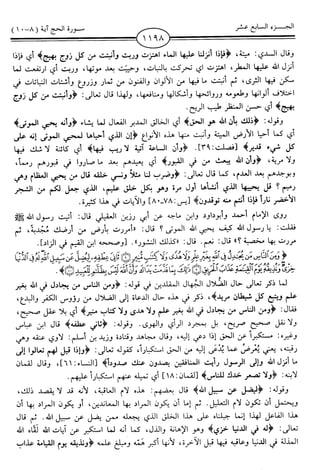 الجـــزء السابـع عشـر
١١٩٨
سـورة الحج آية (٨-١٠)
وقال السدي: ميتة، ﴿فإذا أنزلنا عليها الماء اهتزت وربت وأنبتت من كل زوج بهيج﴾ أي فإذا
أنزل الله عليها المطر، اهتزت أي تحركت بالنبات، وحييت بعد موتها، وربت أي ارتفعت لما
سكن فيها الثرى، ثم أنبتت ما فيها من الألوان والفنون من ثمار وزروع وأشتات النباتات في
اختلاف ألوانها وطعومه وروائحها وأشكالها ومنافعها، ولهذا قال تعالى: ﴿وأنبتت من كل زوج
بهيج﴾ أي حسن المنظر طيب الريح.
وقوله: ﴿ذلك بأن الله هو الحق﴾ أي الخالق المدبر الفعال لما يشاء ﴿وأنه يحيي الموتى﴾
أي كما أحيا الأرض الميتة وأنبت منها هذه الأنواع ﴿إن الذي أحياها لمحيي الموتى إنه على
كل شيء قدير﴾ [فصلت: ٣٩]. ﴿وأن الساعة آتية لا ريب فيها﴾ أي كائنة لا شك فيها
ولا مرية، ﴿وأن الله يبعث من في القبور﴾ أي يعيدهم بعد ما صاروا في قبورهم رمماً،
ويوجدهم بعد العدم، كما قال تعالى: ﴿وضرب لنا مثلاً ونسي خلقه قال من يحيي العظام وهي
رميم؟ قل يحييها الذي أنشأها أول مرة وهو بكل خلق عليم، الذي جعل لكم من الشجر
الأخضر ناراً فإذا أنتم منه توقدون﴾ [يس: ٧٨-٨٠] والآيات في هذا كثيرة.
روى الإمام أحمد وأبوداود وابن ماجه عن أبي رزين العقيلي قال: أتيت رسول الله ﷺ
فقلت: يا رسول الله كيف يحيي الله الموتى؟ قال: «أمررت بأرض من أرضك مجدبة، ثم
مررت بها مخصبة؟» قال: نعم. قال: «كذلك النشور». [وصححه ابن القيم في الزاد].
لما ذكر تعالى حال الضلال الجهال المقلدين في قوله: ﴿ومن الناس من يجادل في الله بغير
علم ويتبع كل شيطان مريد﴾، ذكر في هذه حال الدعاة إلى الضلال من رؤوس الكفر والبدع،
فقال: ﴿ومن الناس من يجادل في الله بغير علم ولا هدى ولا كتاب منير﴾ أي بلا عقل صحيح،
ولا نقل صحيح صريح، بل بمجرد الرأي والهوى. وقوله: ﴿ثاني عطفه﴾ قال ابن عباس
وغيره: مستكبراً عن الحق إذا دعي إليه، وقال مجاهد وقتادة وزيد بن أسلم: لاوي عنقه وهي
رقبته، يعني يُعْرض عما يُدْعى إليه من الحق استكباراً، كقوله تعالى: ﴿وإذا قيل لهم تعالوا إلى
ما أنزل الله وإلى الرسول رأيت المنافقين يصدون عنك صدوداً﴾ [النساء: ٦١]، وقال لقمان
لابنه: ﴿ولا تصعر خدك للناس﴾ [لقمان: ١٨] أي تميله عنهم استكباراً عليهم.
وقوله: ﴿ليضل عن سبيل الله﴾ قال بعضهم: هذه لام العاقبة، لأنه قد لا يقصد ذلك،
ويحتمل أن تكون لام التعليل. ثم إما أن يكون المراد بها المعاندين، أو يكون المراد بها أن
هذا الفاعل لهذا إنما جبلناه على هذا الخلق الذي يجعله ممن يضل عن سبيل الله. ثم قال
تعالى: ﴿له في الدنيا خزي﴾ وهو الإهانة والذل، كما أنه لما استكبر عن آيات الله لقّاه الله
المذلة في الدنيا وعاقبه فيها قبل الآخرة، لأنها أكبر همّه ومبلغ علمه ﴿ونذيقه يوم القيامة عذاب